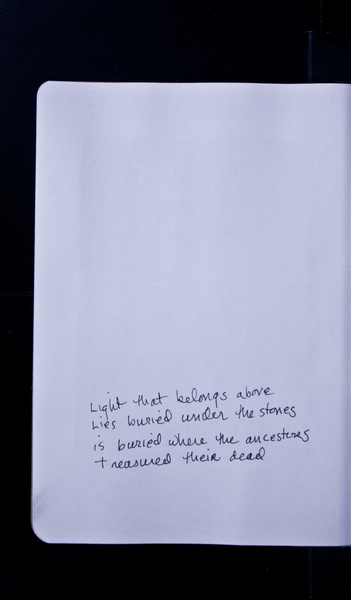 Light that belongs above
Lies buried under the stones
is buried where the ancestors
treasured their dead